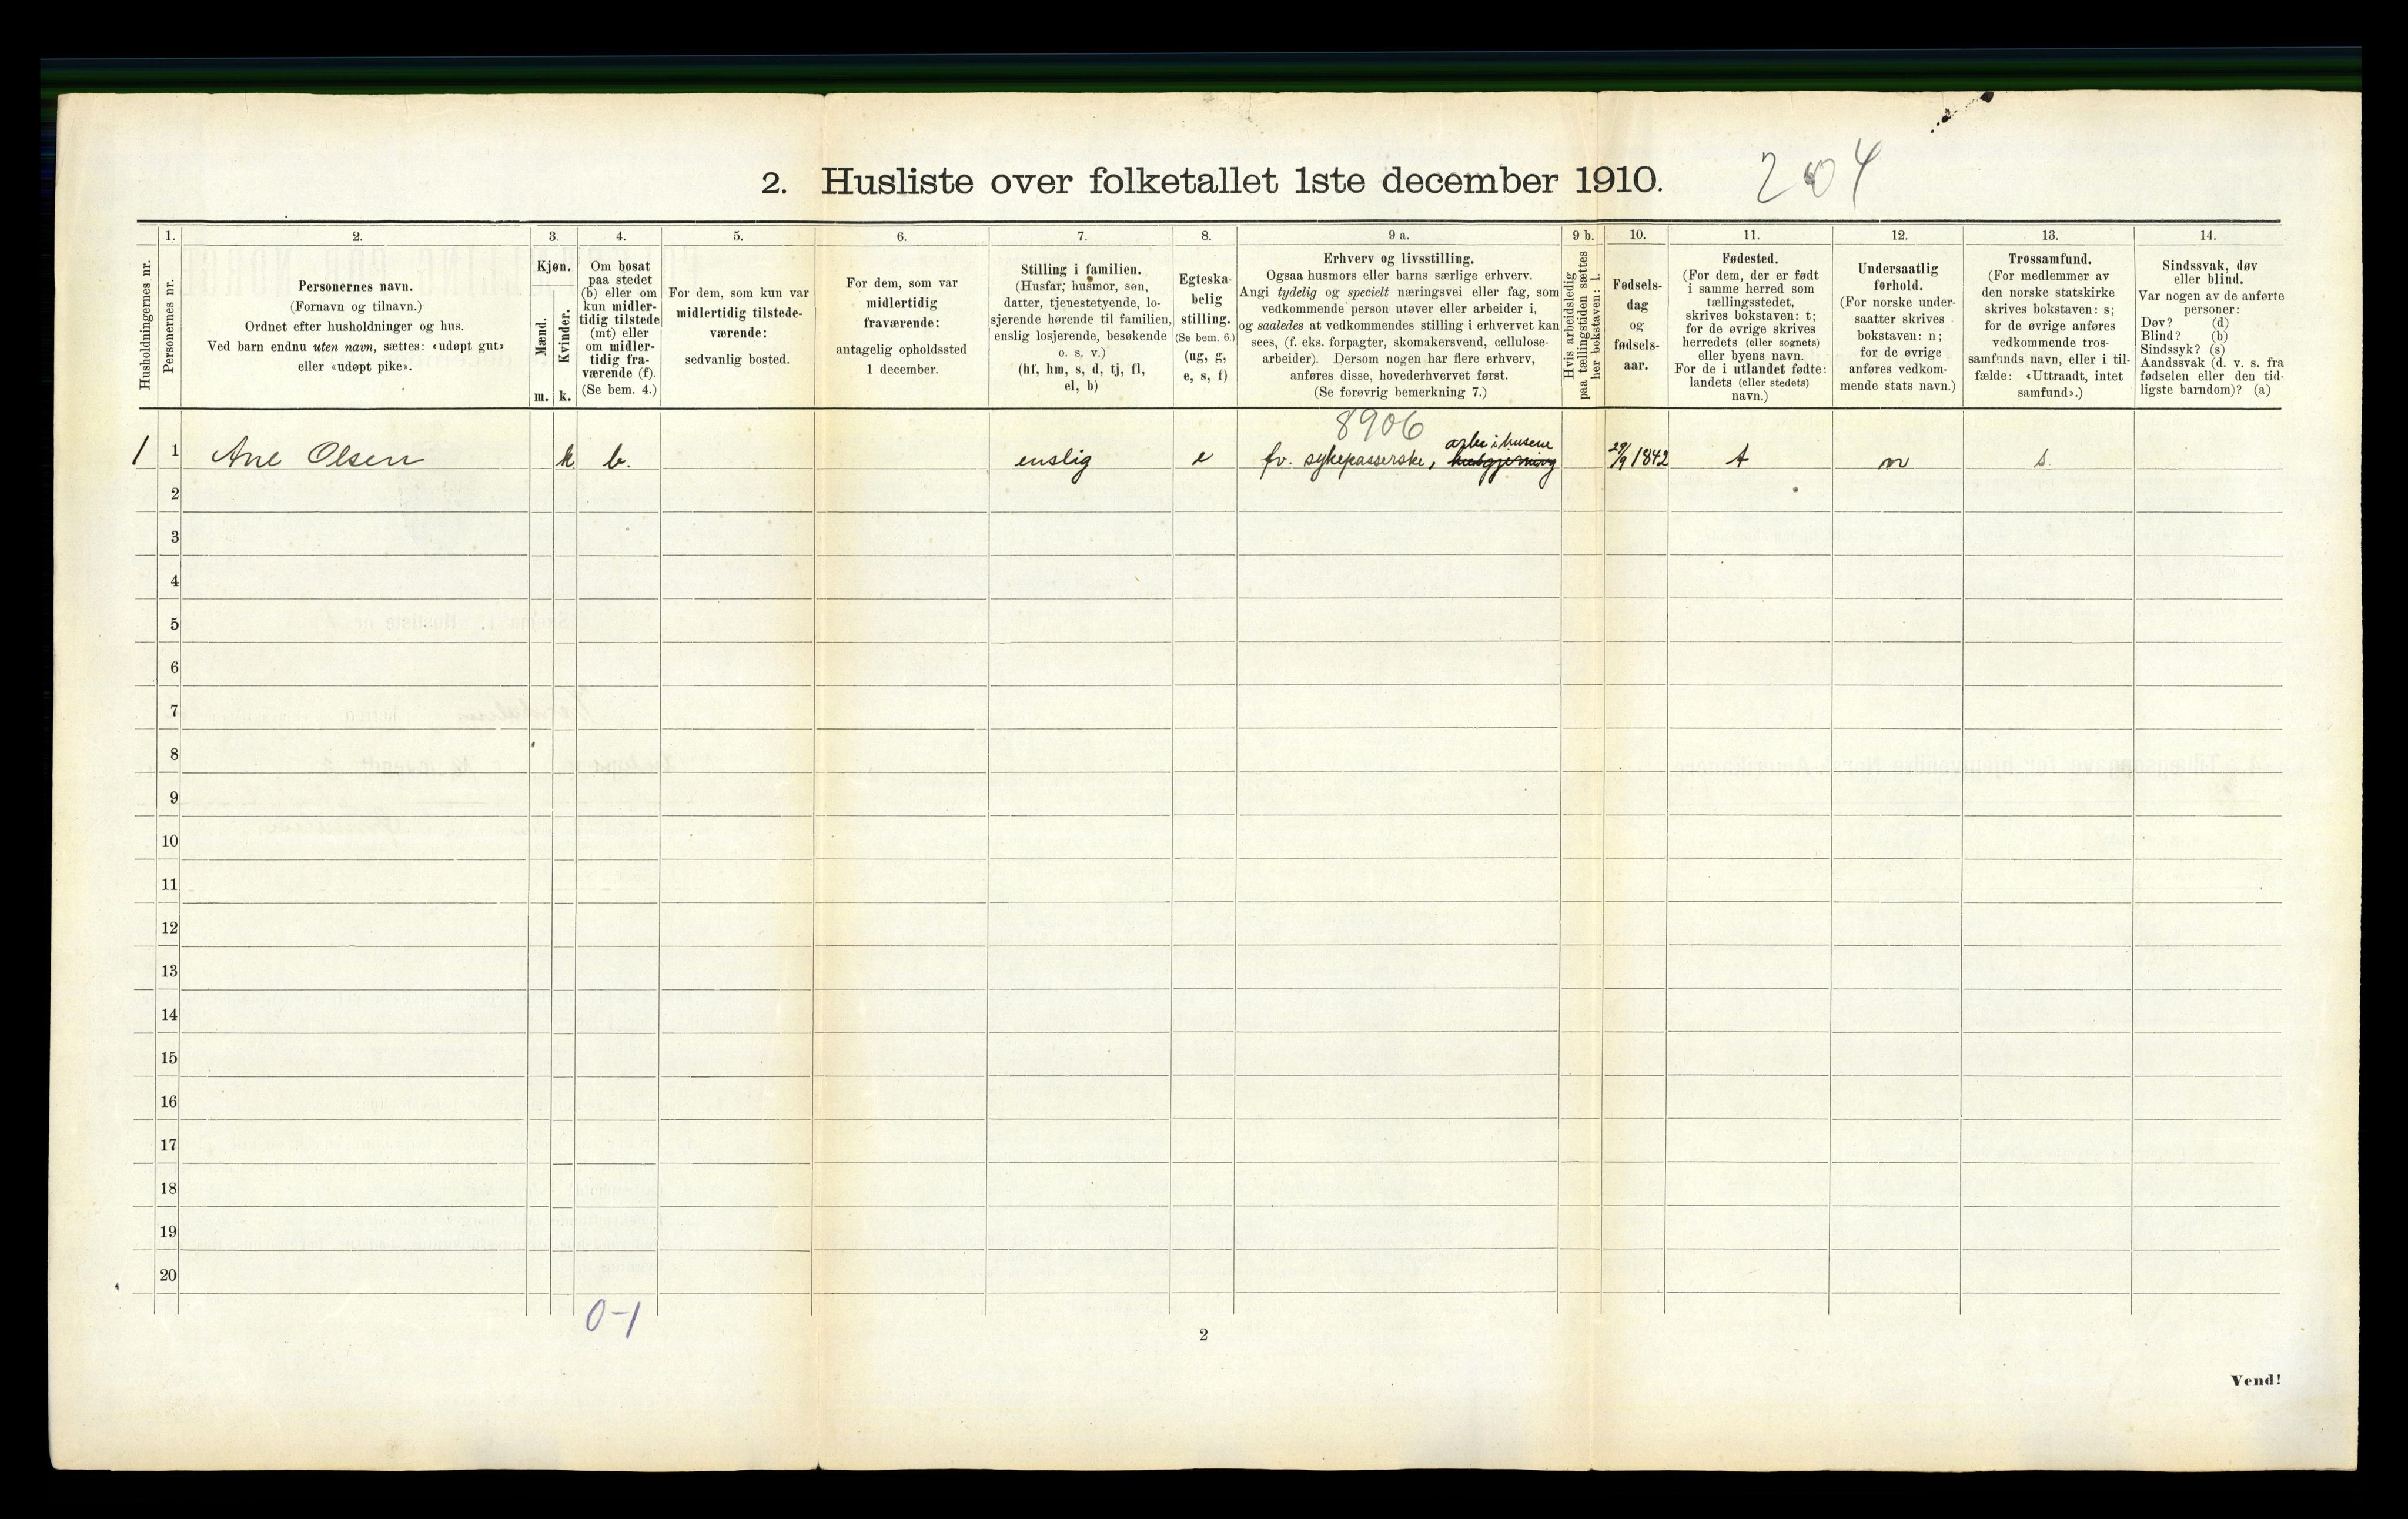 2. Husliste over folketallet 1ste december 1910.
204
Husholdningernes nr.
1.
Personernes nr.
2.
Personernes navn.
(Fornavn og tilnavn.)
Ordnet efter husholdninger og hus.
Ved barn endnu uten navn, sættes: «udøpt gut»
eller «udøpt pike».
3.
Kjøn.
Mænd.
m.
Kvinder.
k.
4.
Om bosat
paa stedet
(b) eller om
kun midler-
tidig tilstede
(mt) eller
om midler-
tidig fra-
værende (f).
(Se bem. 4.)
5.
For dem, som kun var
midlertidig tilstede-
værende:
sedvanlig bosted.
6.
For dem, som var
midlertidig
fraværende:
antagelig opholdssted
1 december.
7.
Stilling i familien.
(Husfar, husmor, søn,
datter, tjenestetyende, lo-
sjerende hørende til familien,
enslig losjerende, besøkende
o. s. v.)
(hf, hm, s, d, tj, fl,
el, b)
8.
Egteska-
belig
stilling.
(Se bem. 6.)
(ug, g,
e, s, f)
9 a.
Erhverv og livsstilling.
Ogsaa husmors eller barns særlige erhverv.
Angi tydelig og specielt næringsvei eller fag, som
vedkommende person utøver eller arbeider i,
og saaledes at vedkommendes stilling i erhvervet kan
sees, (f. eks. forpagter, skomakersvend, cellulose-
arbeider). Dersom nogen har flere erhverv,
anføres disse, hovederhvervet først.
(Se forøvrig bemerkning 7.)
9 b.
Hvis arbeidsledig
paa tællingstiden sættes
her bokstaven: l.
10.
Fødsels-
dag
og
fødsels-
aar.
11.
Fødested.
(For dem, der er født
i samme herred som
tællingsstedet,
skrives bokstaven: t;
for de øvrige skrives
herredets (eller sognets)
eller byens navn.
For de i utlandet fødte:
landets (eller stedets)
navn.)
12.
Undersaatlig
forhold.
(For norske under-
saatter skrives
bokstaven: n;
for de øvrige
anføres vedkom-
mende stats navn.)
13.
Trossamfund.
(For medlemmer av
den norske statskirke
skrives bokstaven: s;
for de øvrige anføres
vedkommende tros-
samfunds navn, eller i til-
fælde: «Uttraadt, intet
samfund».)
14.
Sindssvak, døv
eller blind.
Var nogen av de anførte
personer:
Døv? (d)
Blind? (b)
Sindssyk? (s)
Aandssvak (d. v. s. fra
fødselen eller den tid-
ligste barndom)? (a)
8906
arbe i husene
1 1 Ane Olsen k b. enslig e fv. sykepasserske, husgjerning 29/9 1842 t n s.
2
3
4
5
6
7
8
9
10
11
12
13
14
15
16
17
18
19
20
0-1
2
Vend!